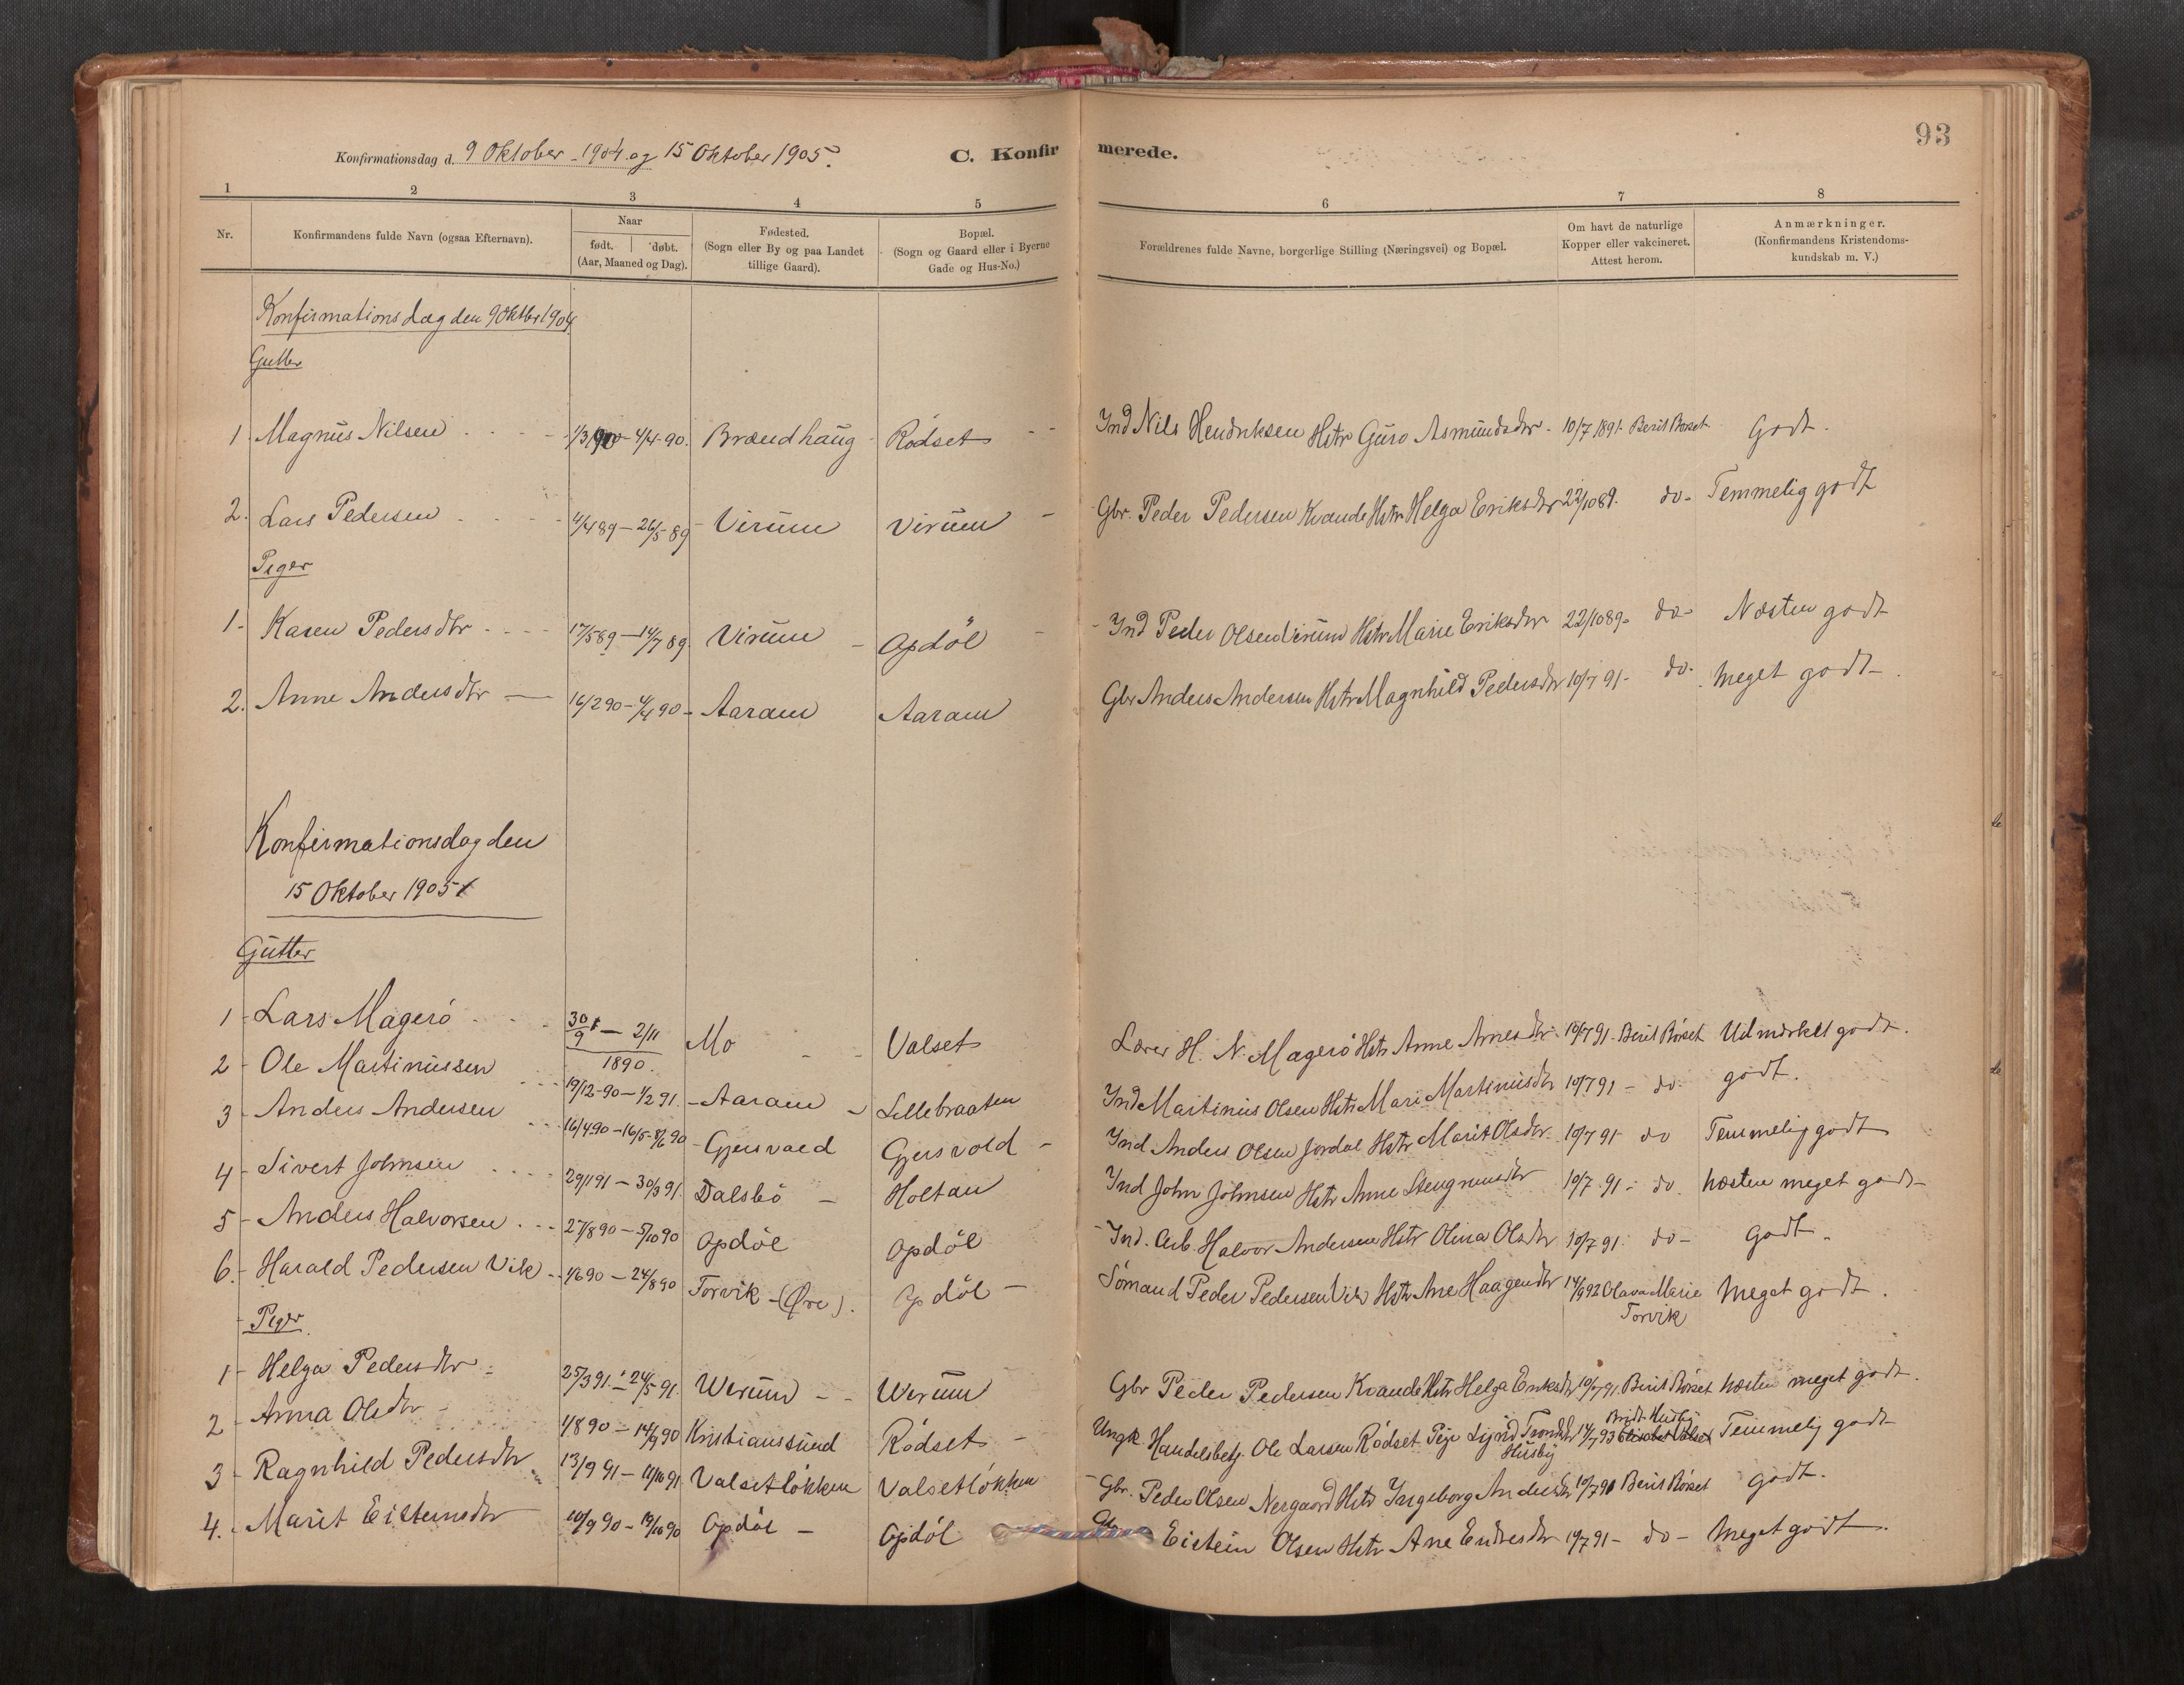 93
Konfirmationsdag d. 9 Oktober - 1904 og 15 Oktober 1905.
C. Konfirmerede.
1 2 3 4 5 6 7 8
Nr.
Konfirmandens fulde Navn (ogsaa Efternavn).
Naar
født. døbt.
(Aar, Maaned og Dag).
Fødested.
(Sogn eller By og paa Landet
tillige Gaard).
Bopæl.
(Sogn og Gaard eller i Byerne
Gade og Hus-No.)
Forældrenes fulde Navne, borgerlige Stilling (Næringsvei) og Bopæl.
Om havt de naturlige
Kopper eller vakcineret.
Attest herom.
Anmærkninger.
(Konfirmandens Kristendoms-
kundskab m. V.)
Konfirmationsdag den 9 Oktbr 1904
Gutter
1 Magnus Nilsen 1/3 90 - 4/4-90. Brændhaug Rødset Ind Nils Hendriksen Hstr Guro Asmundsdtr - 10/7 1891. Berit Børset Godt.
2. Lars Pedersen 4/4 89 - 26/5-89 Virum Virum Gbr. Peder Pedersen Kvande Hstr Helga Eriksdtr 22/10 89. do- Temmelig godt
Piger
1- Karen Pedersdtr 17/5 89 - 14/7 89. Virum - Opdøl - Ind Peder Olsen Virum Hstr Marie Eriksdtr 22/10 89- do- Næsten godt
2. Anne Andersdtr - 16/2 90 - 4/4 90 - Aaram Aaram Gbr Anders Andersen Hstr Magnhild Pedersdtr 10/7 91- do. Meget godt -
Konfirmationsdag den
15 Oktober 1905
Gutter
1 - Lars Magerø 30/9 - 2/11 1890. Mo - - Valset Lærer H. N. Magerø Hstr Anne Arnesdtr - 10/7 91 - Berit Børset Udmærket godt.
2 - Ole Martinussen 19/12-90 - 1/2 91. - Aaram - Lillebraaten Ind Martinus Olsen Hstr Mari Martinusdtr 10/7 91 - do- godt.
3 - Anders Andersen 16/4 90 - 16/5- 8/6 90 - Gjersvold Gjersvold - Ind Anders Olsen Jordal Hstr Marit Olsdtr 10/7 91 - do Temmelig godt
4 - Sivert Johnsen 29/1 91 - 30/3 91. Dalsbø - Holtan Ind John Johnsen Hstr Anne Stengrimsdtr 10/7 91 - do. næsten meget godt -
5 - Anders Halvorsen 27/8 90 - 5/10 90 Opdøl Opdøl - Ind. Arb. Halvor Andersen Hstr Olina Olsdtr 10/7 91. do - godt.
6. - Harald Pedersen Vik 1/6 90 - 24/8 90 Torvik - (Øre). Opdøl - Sømand Peder Pedersen Vik Hstr Ane Haagendtr 14/9 92 Olava Marie Meget godt.
Torvik
Piger.
1 - Helga Pedersdtr 25/3 91. - 24/5 91. Wirum - - Wirum Gbr Peder Pedersen Kvande Hstr Helga Eriksdtr 10/7 91. Berit Børset næsten meget godt.
Brit Husby
2 - Anna Olsdtr - 1/8 90 - 14/9 90 Kristianssund Rødset - Ungk. Handelsbetj. Ole Larsen Rødset Pige Sigrid Trondsdtr 14/7 93 Temmelig godt
Husby
3 - Ragnhild Pedersdtr 13/9 91 - 11/10 91 Valsetløkken Valsetløkken - Gbr. Peder Olsen Nergaard Hstr Ingeborg Andersdtr 10/7 91 Berit Børset godt.
4. - Marit Eisteinsdtr 10/9 90 - 19/10 90 Opdøl - Opdøl Eistein Olsen Hstr Ane Endresdtr 10/7 91 - do - Meget godt.